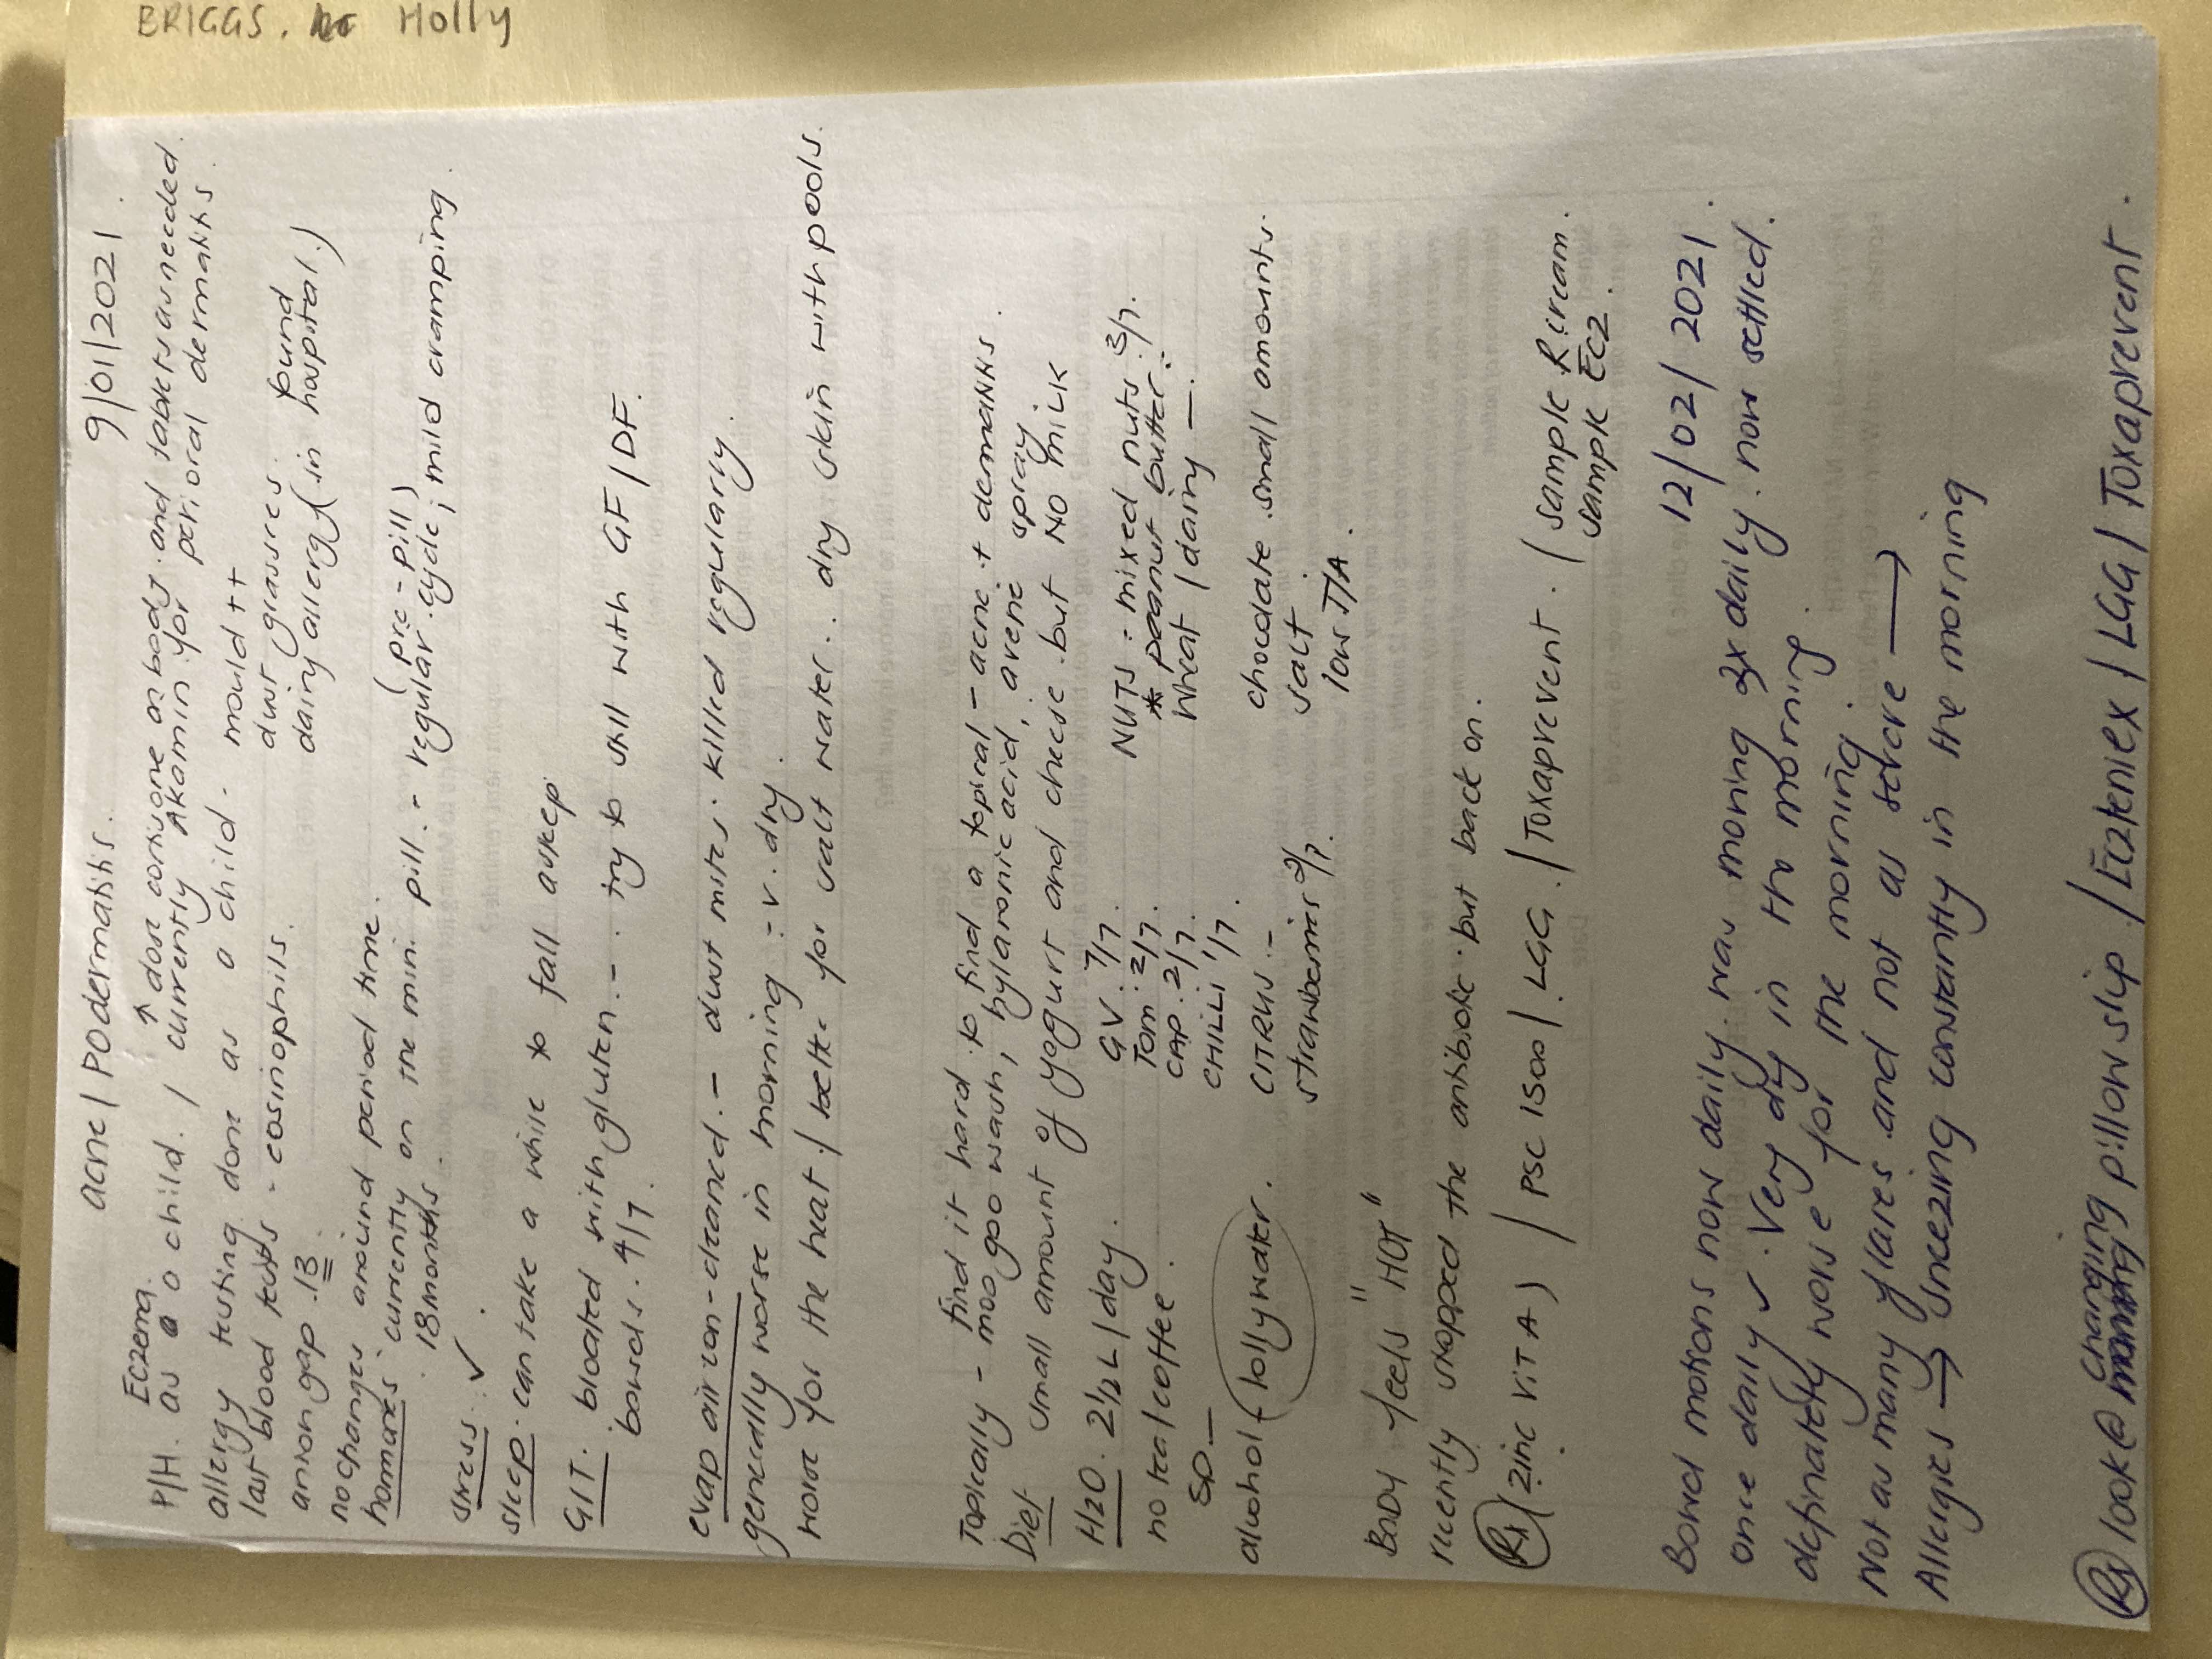 BRIGGS. Holly
acne / POdermatitis. 9/01/2021.
Eczema. ↑ dose cortisone on body. and tablets as needed.
P/H. as a child. / currently Akamin for perioral dermatitis.
allergy testing done as a child. mould ++
last blood tests - eosinophils. dust grasses. found
anion gap. 13. dairy allergy (in hospital.)
no changes around period time.
hormones currently on the mini pill. - regular cycle; mild cramping.
(pre-pill)
18months.
stress: ✓.
sleep. can take a while to fall asleep.
GIT. bloated with gluten. - try to still with GF/DF.
bowels. 4/7.
evap air con - cleaned. - dust mites. killed regularly.
generally worse in morning: - v. dry.
worse for the heat. / better for salt water.. dry skin with pools.
Topically - find it hard to find a topical - acne + dermatitis.
- moo goo wash, hylaronic acid, avene spray
Diet small amount of yogurt and cheese but NO MILK
H2O. 2 1/2 L /day. GV: 7/7. NUTS: mixed nuts 3/7.
no tea / coffee. Tom: 2/7. * peanut butter:
SD — CAP. 2/7. wheat / dairy —.
CHILLI 1/7.
alcohol - lolly water. CITRUS: - chocolate. small amounts.
strawberries 2/7. salt
low T/A.
BODY feels "HOT"
recently stopped the antibiotic. but back on.
Rx / zinc Vit A ) / PSC 1500 / LGG. / Toxaprevent. / sample Rcream.
sample EC2.
12/02/2021.
Bowel motions now daily. was moving 2x daily. now settled.
once daily ✓. Very dry in the morning.
definately worse for the morning.
Not as many flares and not as severe →
Allergies → sneezing constantly in the morning
Rx look @ changing pillow slip. / Ezteniex / LGG / Toxaprevent.